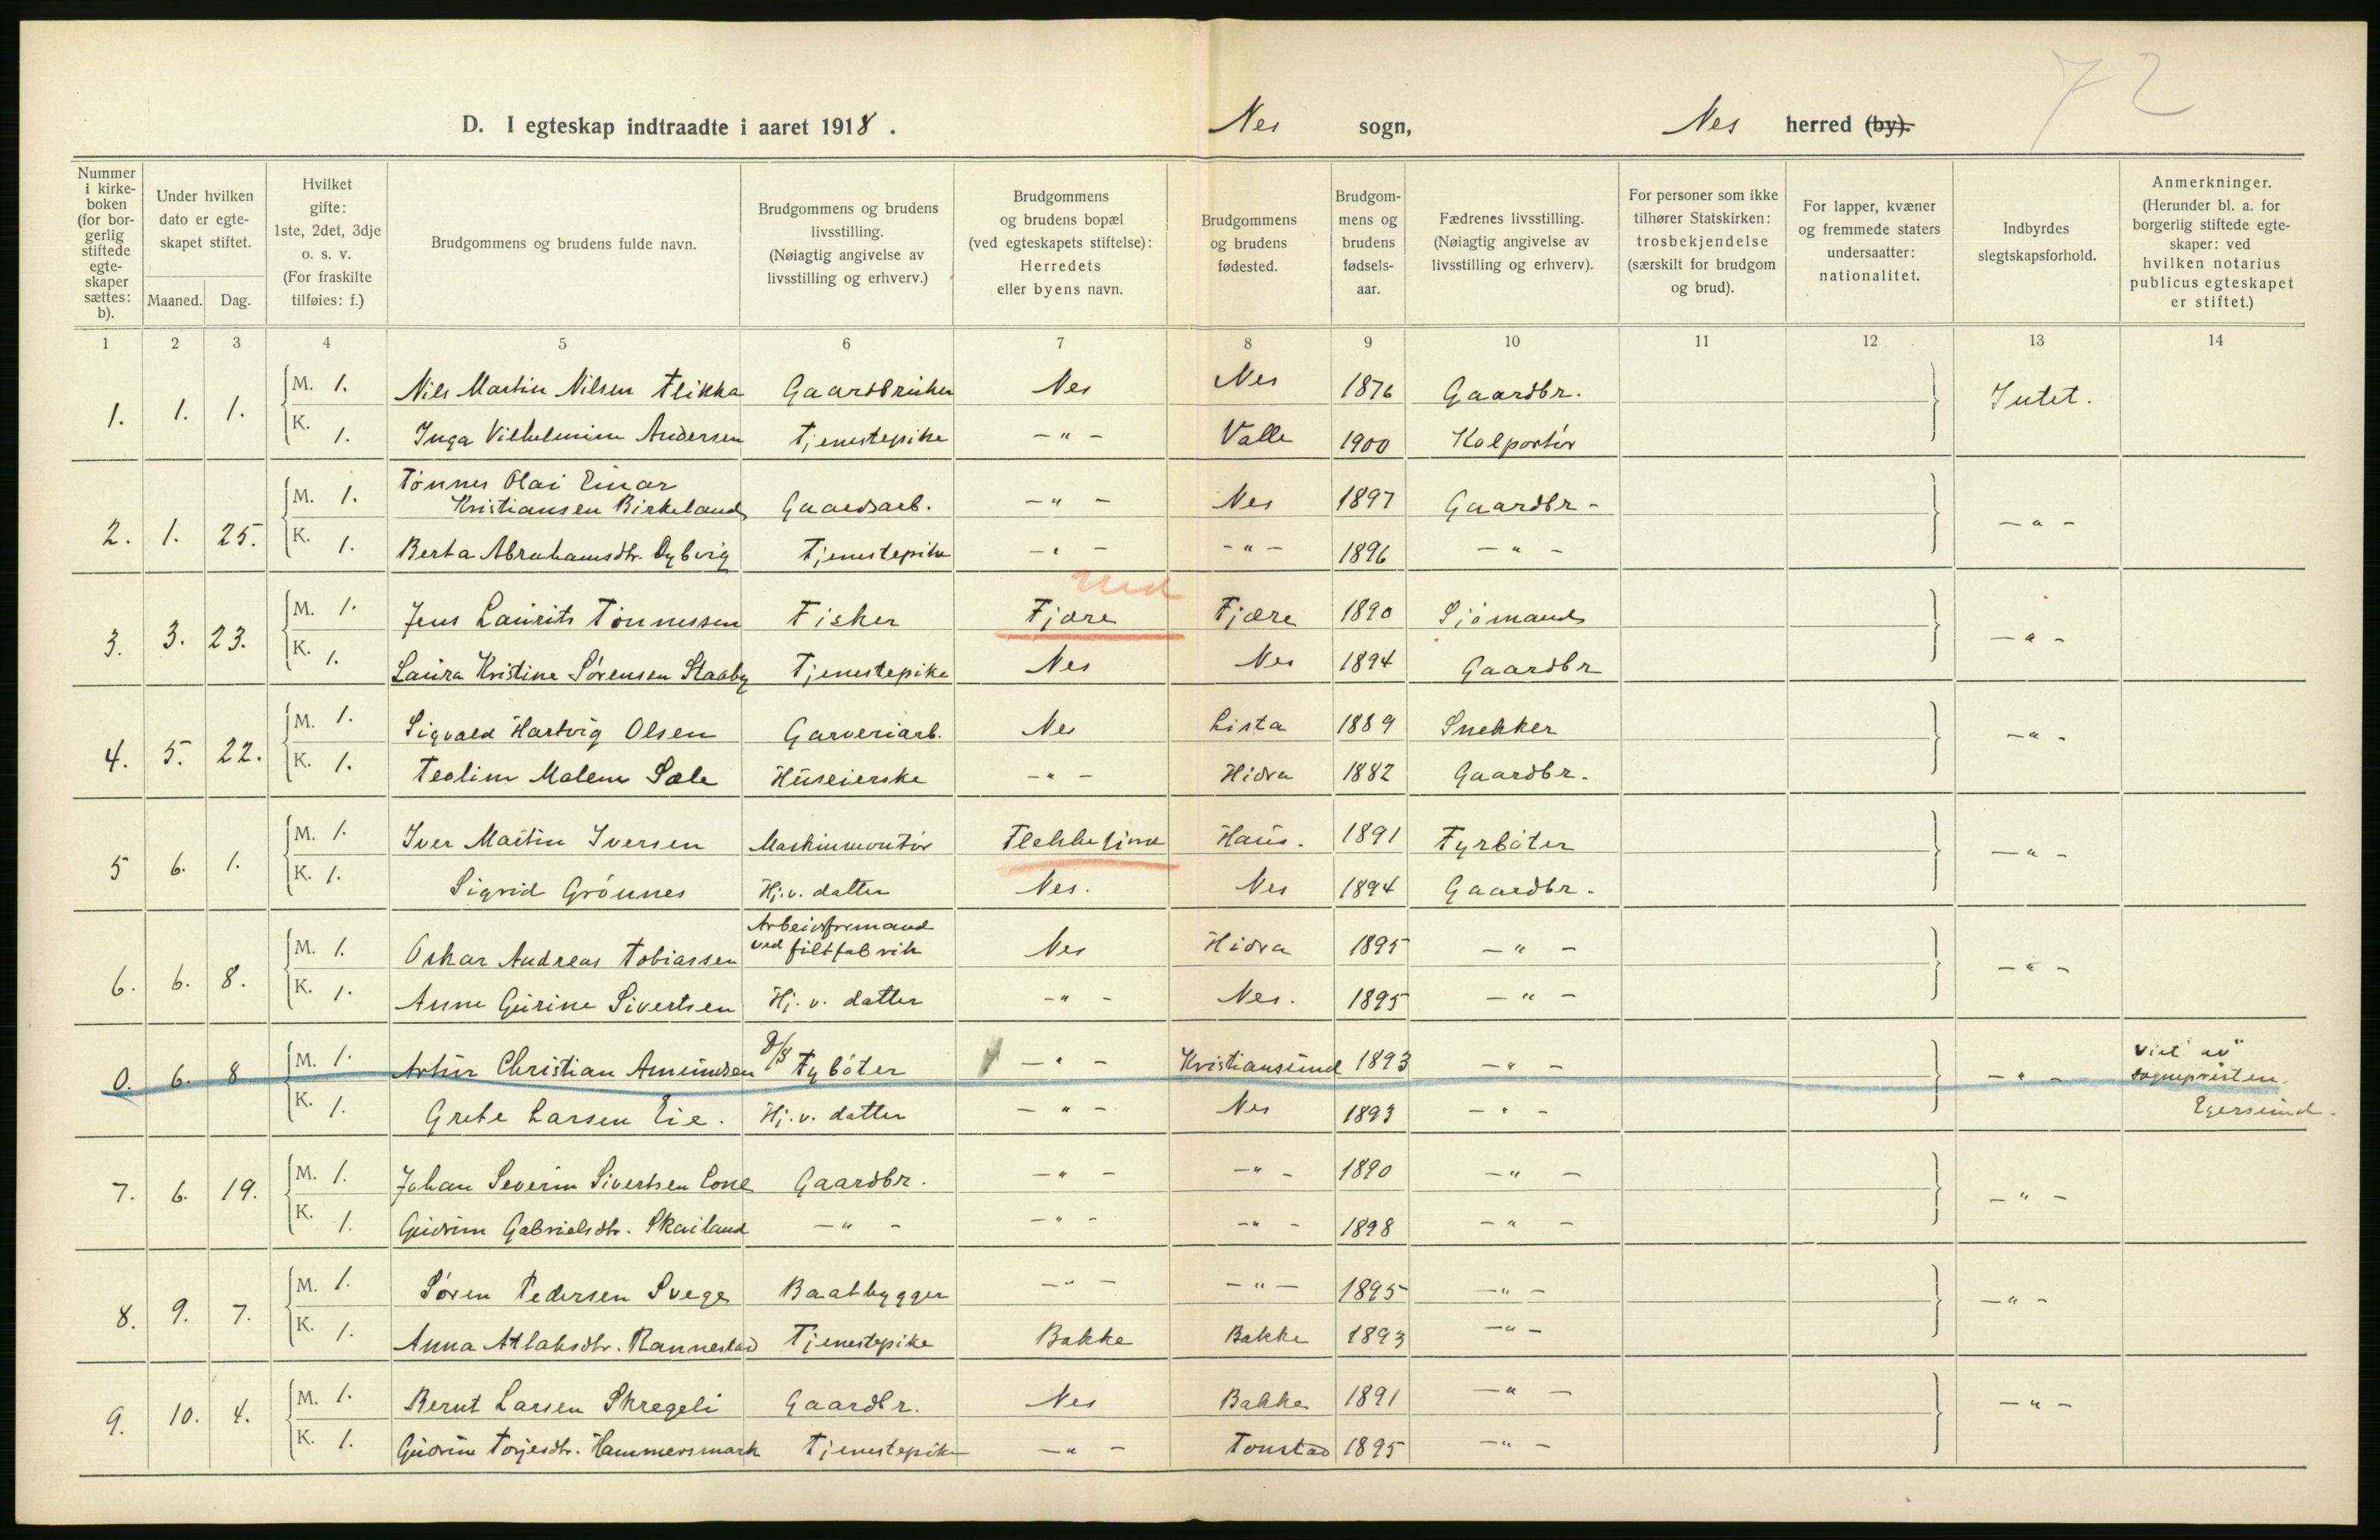 72
D. I egteskap indtraadte i aaret 1918. Nes sogn, Nes herred (by).
Nummer i kirke-boken (for bor-gerlig stiftede egte-skaper sættes: b).
Under hvilken dato er egte-skapet stiftet.
Maaned. Dag.
Hvilket gifte: 1ste, 2det, 3dje o. s. v. (For fraskilte tilføies: f.)
Brudgommens og brudens fulde navn.
Brudgommens og brudens livsstilling. (Nøiagtig angivelse av livsstilling og erhverv.)
Brudgommens og brudens bopæl (ved egteskapets stiftelse): Herredets eller byens navn.
Brudgommens og brudens fødested.
Brudgom-mens og brudens fødsels-aar.
Fædrenes livsstilling. (Nøiagtig angivelse av livsstilling og erhverv).
For personer som ikke tilhører Statskirken: trosbekjendelse (særskilt for brudgom og brud).
For lapper, kvæner og fremmede staters undersaatter: nationalitet.
Indbyrdes slegtskapsforhold.
Anmerkninger. (Herunder bl. a. for borgerlig stiftede egte-skaper: ved hvilken notarius publicus egteskapet er stiftet.)
1 2 3 4 5 6 7 8 9 10 11 12 13 14
1. 1. 1. M. 1. Nils Martin Nilsen Flikka Gaardbruker Nes Nes 1876 Gaardbr. Intet.
K. 1. Inga Vilhelmine Andersen Tjenestepike -"- Valle 1900 Kolportör
2. 1. 25. M. 1. Tönnes Olai Einar
Kristiansen Birkeland Gaardsarb. -"- Nes 1897 Gaardbr- -"-
K. 1. Berta Abrahamsdtr. Dybvig Tjenestepike -"- -"- 1896 -"-
3. 3. 23. M. 1. Jens Laurits Tönnessen Fisker Fjære Fjære 1890 Sjömand -"-
K. 1. Laura Kristine Sörensen Staaby Tjenestepike Nes Nes 1894 Gaardbr
4. 5. 22. M. 1. Sigvald Hartvig Olsen Garveriarb. Nes Lista 1889 Snekker -"-
K. 1. Teoline Malene Sæle Huseierske -"- Hidra 1882 Gaardbr.
5 6. 1. M. 1. Iver Martin Iversen Maskinmontör Flekkefjord Haus. 1891 Fyrböter -"-
K. 1. Sigrid Grönnes Hj. v. datter Nes. Nes 1894 Gaardbr.
6. 6. 8. M. 1. Oskar Andreas Tobiassen Arbeidsformand
ved filtfabrik Nes Hidra 1895 -"- -"-
K. 1. Anne Gurine Sivertsen Hj. v. datter -"- Nes. 1895 -"-
0. 6. 8 M. 1. Artur Christian Amundsen D/S Fyböter -"- Kristiansund 1893 -"- -"- Viet av
sognepresten
K. 1. Grete Larsen Eie. Hj. v. datter -"- Nes 1893 -"- Egersund.
7. 6. 19. M. 1. Johan Severin Sivertsen Lone Gaardbr. -"- -"- 1890 -"- -"-
K. 1. Gudrun Gabrielsdtr. Skailand -"- -"- -"- 1898 -"-
8. 9. 7. M. 1. Sören Pedersen Svege Baatbygger -"- -"- 1895 -"- -"-
K. 1. Anna Atlaksdtr. Rannestad Tjenestepike Bakke Bakke 1893 -"-
9. 10. 4. M. 1. Bernt Larsen Skregeli Gaardbr. Nes Bakke 1891 -"- -"-
K. 1. Gudrun Torjesdtr. Hammersmark Tjenestepike -"- Tonstad 1895 -"-